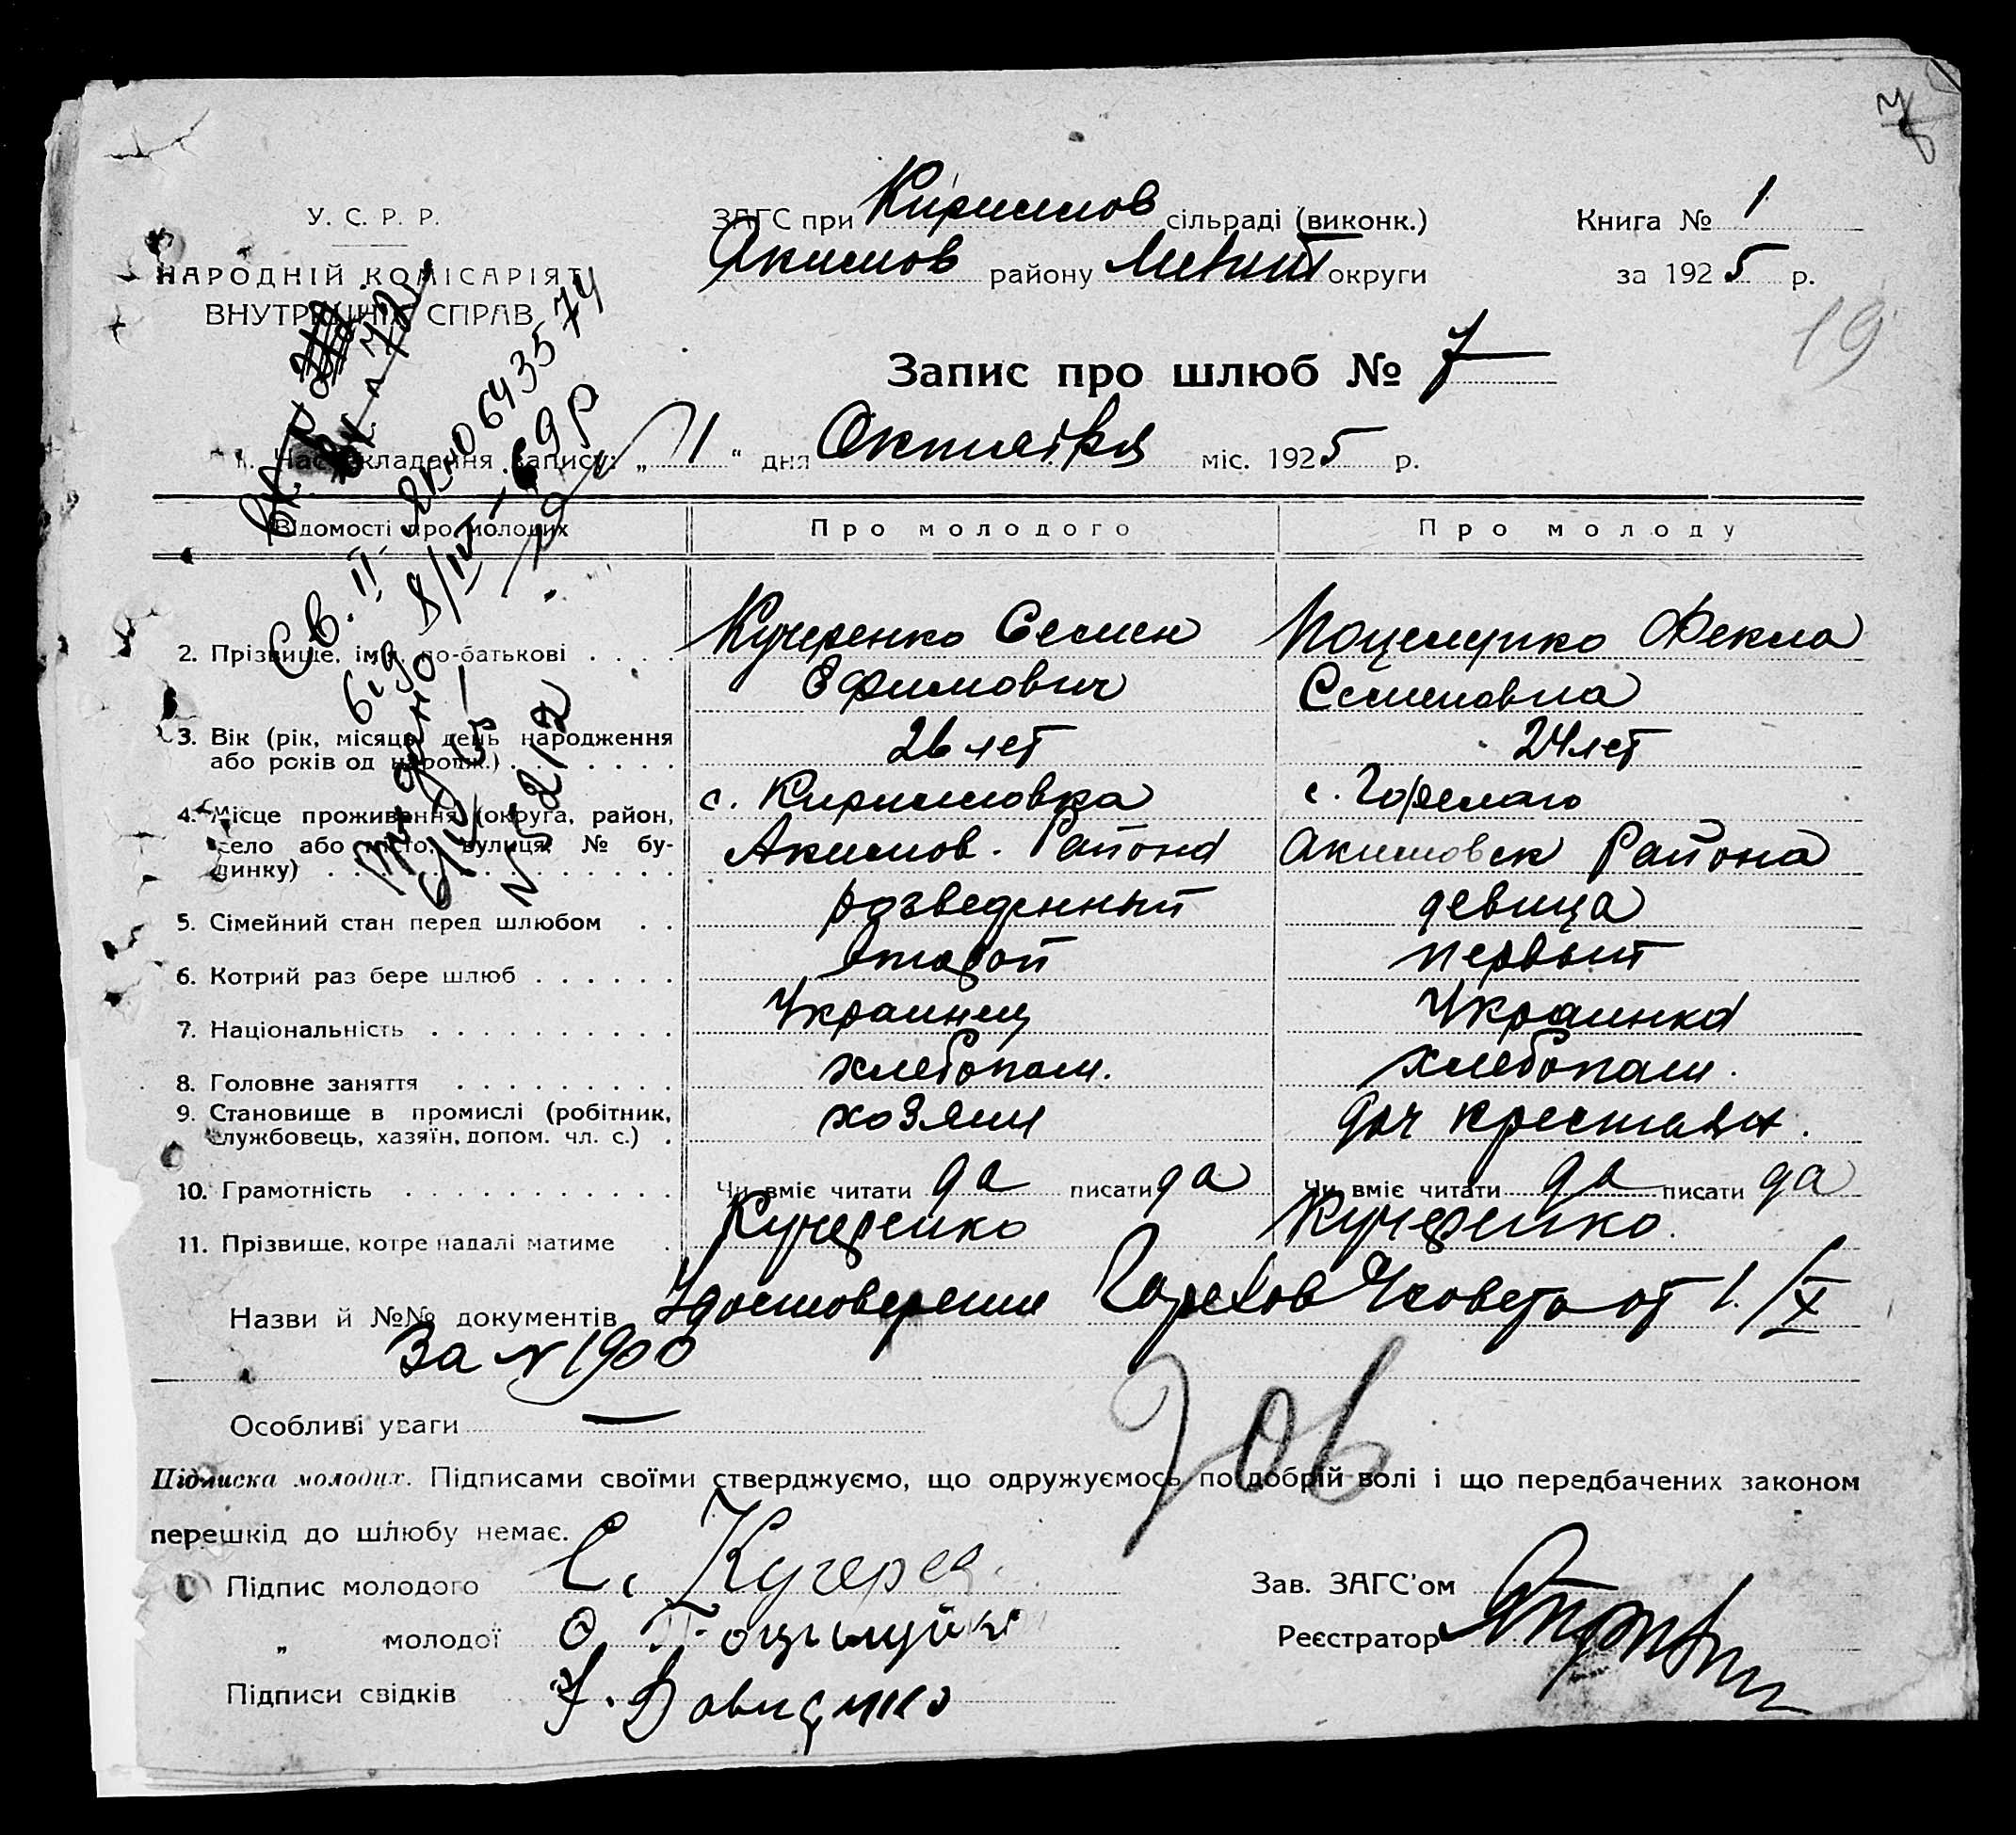 7
У. С. Р. Р.
ЗАГС при Киримов сільраді (виконк.)
Книга № 1
НАРОДНІЙ КОМІСАРІЯТ
ВНУТРІШНІХ СПРАВ
Якимов району Мелит округи
за 1925 р.
19
Запис про шлюб № 7
1. Час складання запису: „ 1 “ дня Октября міс. 1925 р.
Відомості про молодих
Про молодого
Про молоду
2. Прізвище, імя, по-батькові . . . .
Кучеренко Семен
Ефимович
Фекла
Семеновна
3. Вік (рік, місяць, день народження
або років од народж.) . . . . . . .
26 лет
24 лет
4. Місце проживання (округа, район,
село або місто, вулиця, № бу-
динку) . . . . . . . . . . . . . . .
с. Киримовка
Акимов. Района
с. Горелаго
Акимовск Района
5. Сімейний стан перед шлюбом . .
розведенный
девица
6. Котрий раз бере шлюб . . . . . .
второй
первый
7. Національність . . . . . . . . . .
Украинец
Украинка
8. Головне заняття . . . . . . . . .
хлебопаш.
хлебопаш.
9. Становище в промислі (робітник,
службовець, хазяїн, допом. чл. с.) .
хозяин
доч крестьян.
10. Грамотність . . . . . . . . . . .
Чи вміє читати да писати да
Чи вміє читати да писати да
11. Прізвище, котре надалі матиме .
Кучеренко
Кучеренко.
Назви й №№ документів Удостоверение от 1./X
За N 1900
Особливі уваги —
Підписка молодих. Підписами своїми стверджуємо, що одружуємось по добрій волі і що передбачених законом
перешкід до шлюбу немає.
Підпис молодого С. Кучерен
Зав. ЗАГС'ом
„ молодої
Реєстратор
Підписи свідків
Св. II 064335 74
видано 8/IV-69р
N 212